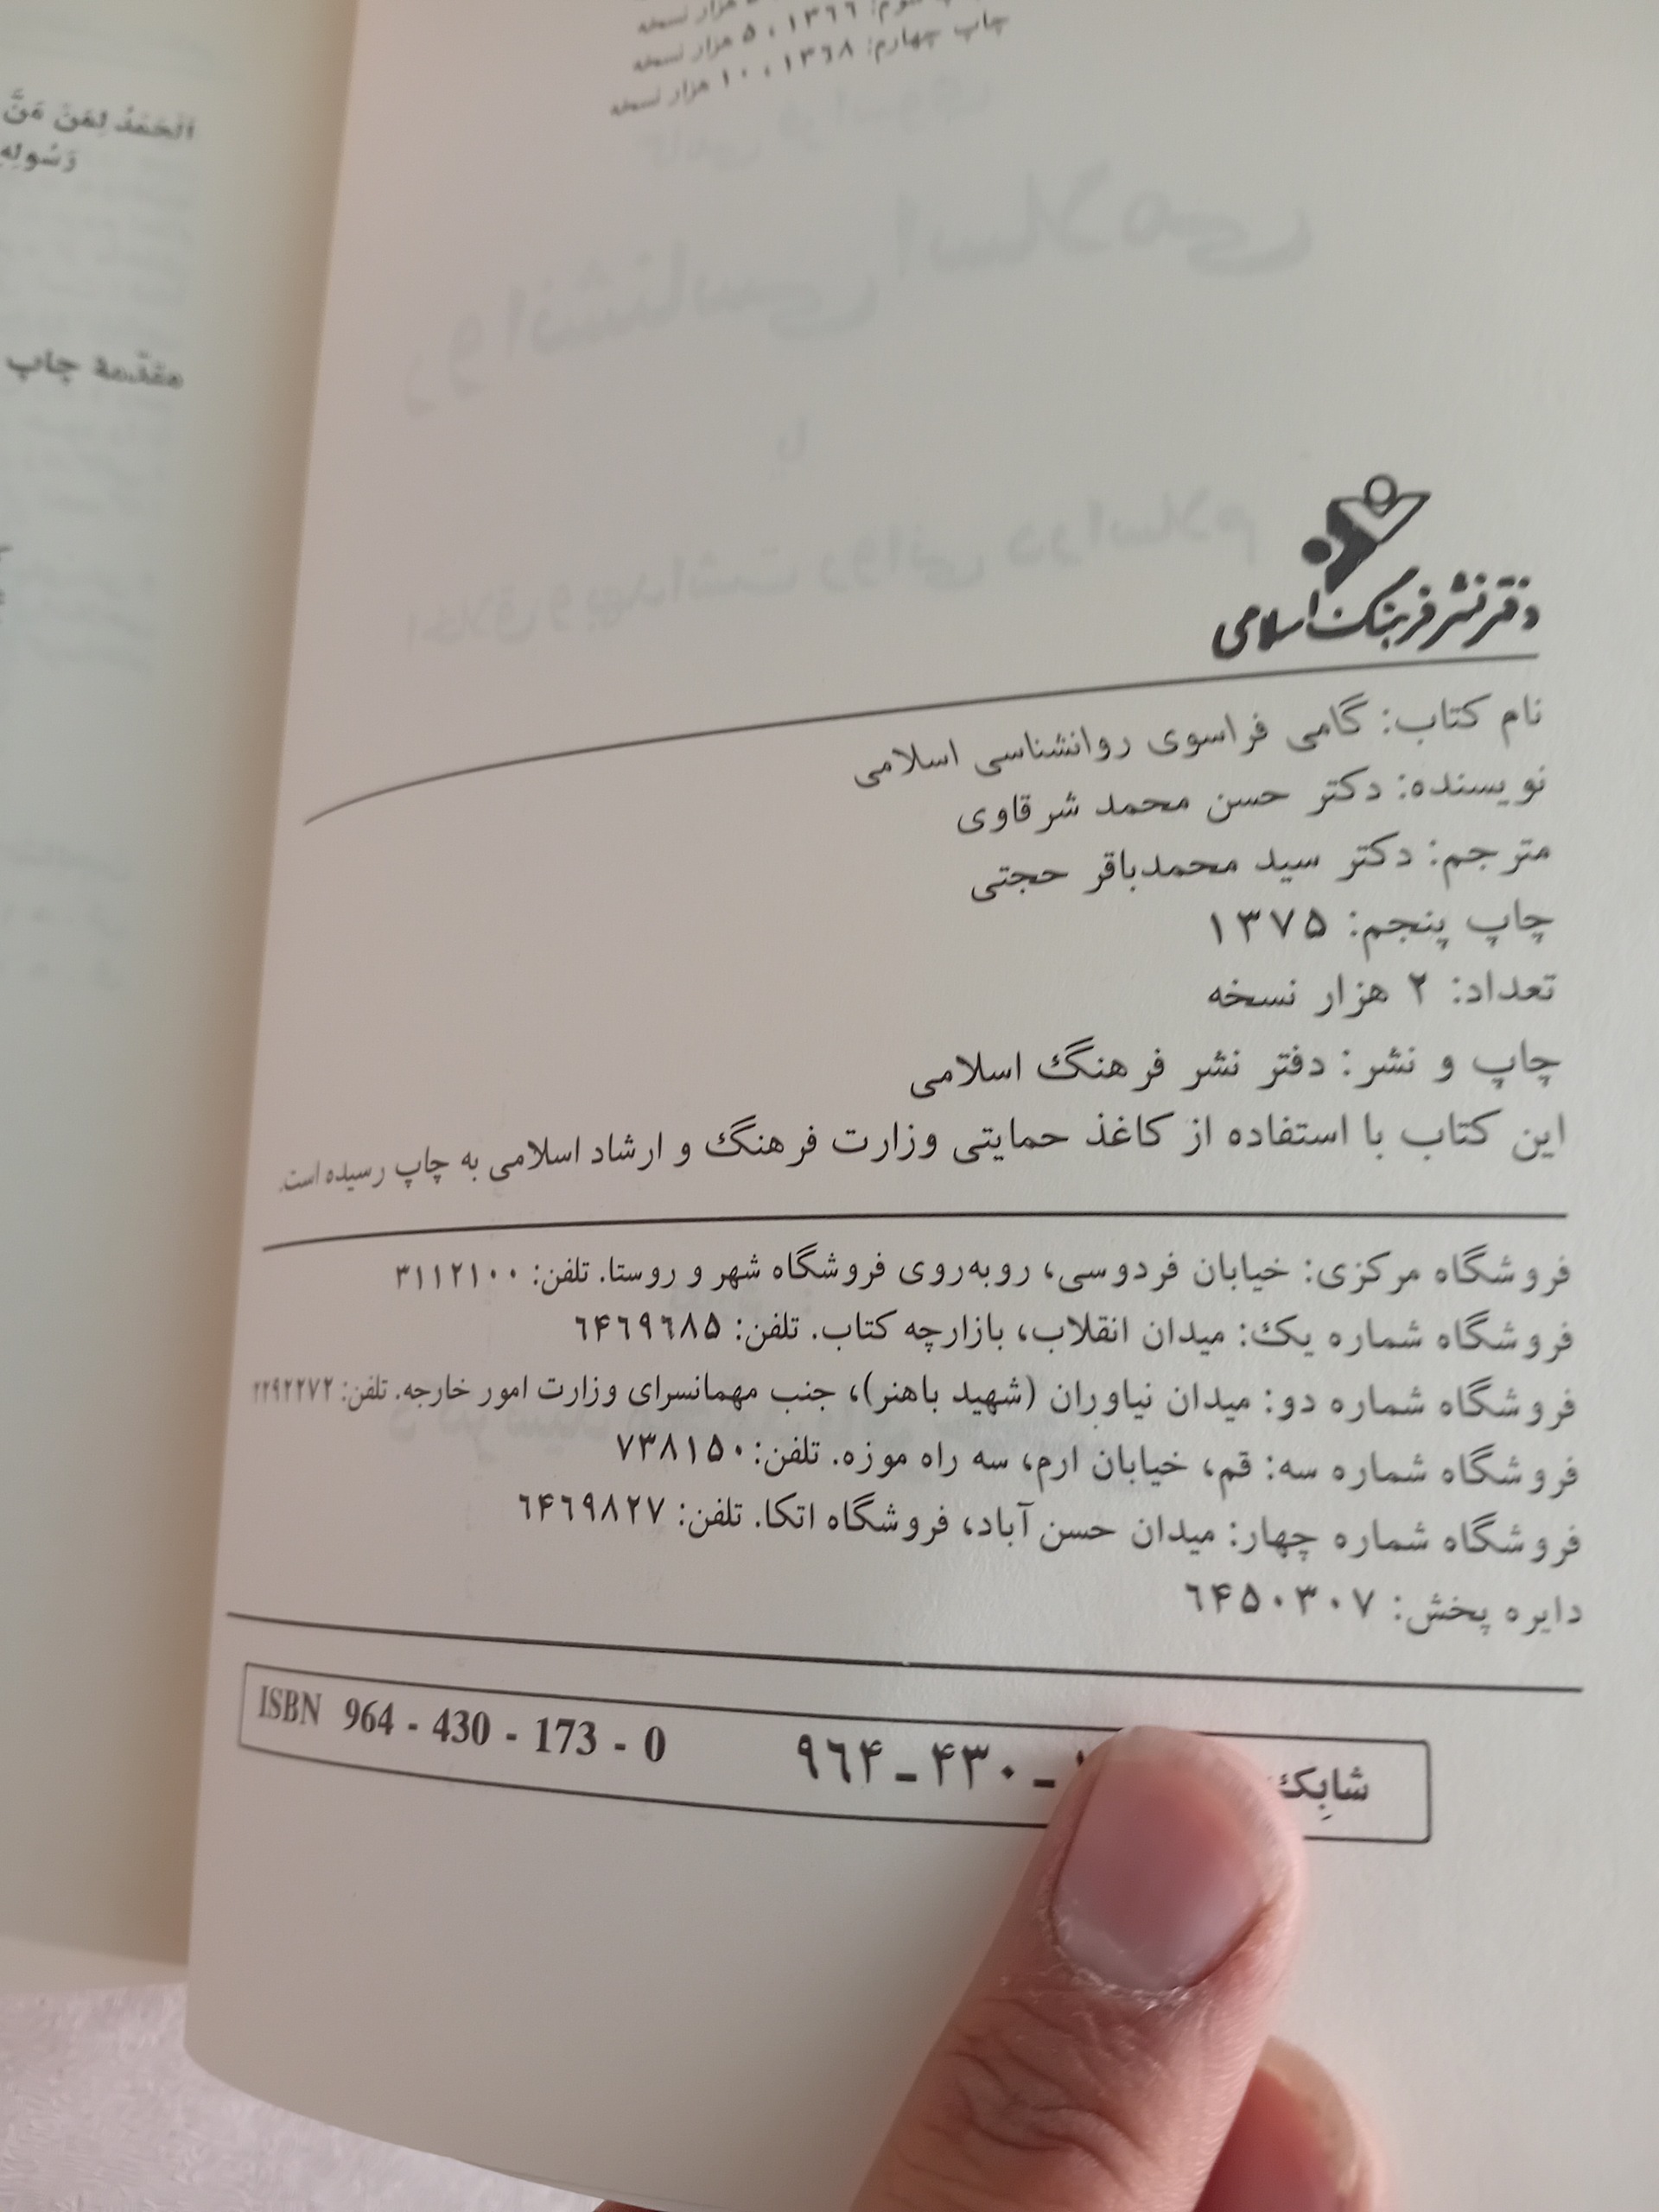 هزار نسخه
سوم: ۱۳٦٦، ۵ هزار نسخه
چاپ چهارم: ۱۳٦۸، ۱۰ هزار نسخه
دفتر نشر فرهنگ اسلامی
نام کتاب: گامی فراسوی روانشناسی اسلامی
نویسنده: دکتر حسن محمد شرقاوی
مترجم: دکتر سید محمدباقر حجتی
چاپ پنجم: ۱۳۷۵
تعداد: ۲ هزار نسخه
چاپ و نشر: دفتر نشر فرهنگ اسلامی
این کتاب با استفاده از کاغذ حمایتی وزارت فرهنگ و ارشاد اسلامی به چاپ رسیده است.
فروشگاه مرکزی: خیابان فردوسی، روبه‌روی فروشگاه شهر و روستا. تلفن: ۳۱۱۲۱۰۰
فروشگاه شماره یک: میدان انقلاب، بازارچه کتاب. تلفن: ٦۴٦۹٦۸۵
فروشگاه شماره دو: میدان نیاوران (شهید باهنر)، جنب مهمانسرای وزارت امور خارجه. تلفن: ۲۲۹۲۲۷۲
فروشگاه شماره سه: قم، خیابان ارم، سه راه موزه. تلفن: ۷۳۸۱۵۰
فروشگاه شماره چهار: میدان حسن آباد، فروشگاه اتکا. تلفن: ٦۴٦۹۸۲۷
دایره پخش: ٦۴۵۰۳۰۷
شابک ۹٦۴ - ۴۳۰ - ISBN 964 - 430 - 173 - 0
اَلْحَمْدُ لِمَنْ مَنَّ
رَسُولِهِ
مقدّمهٔ چاپ